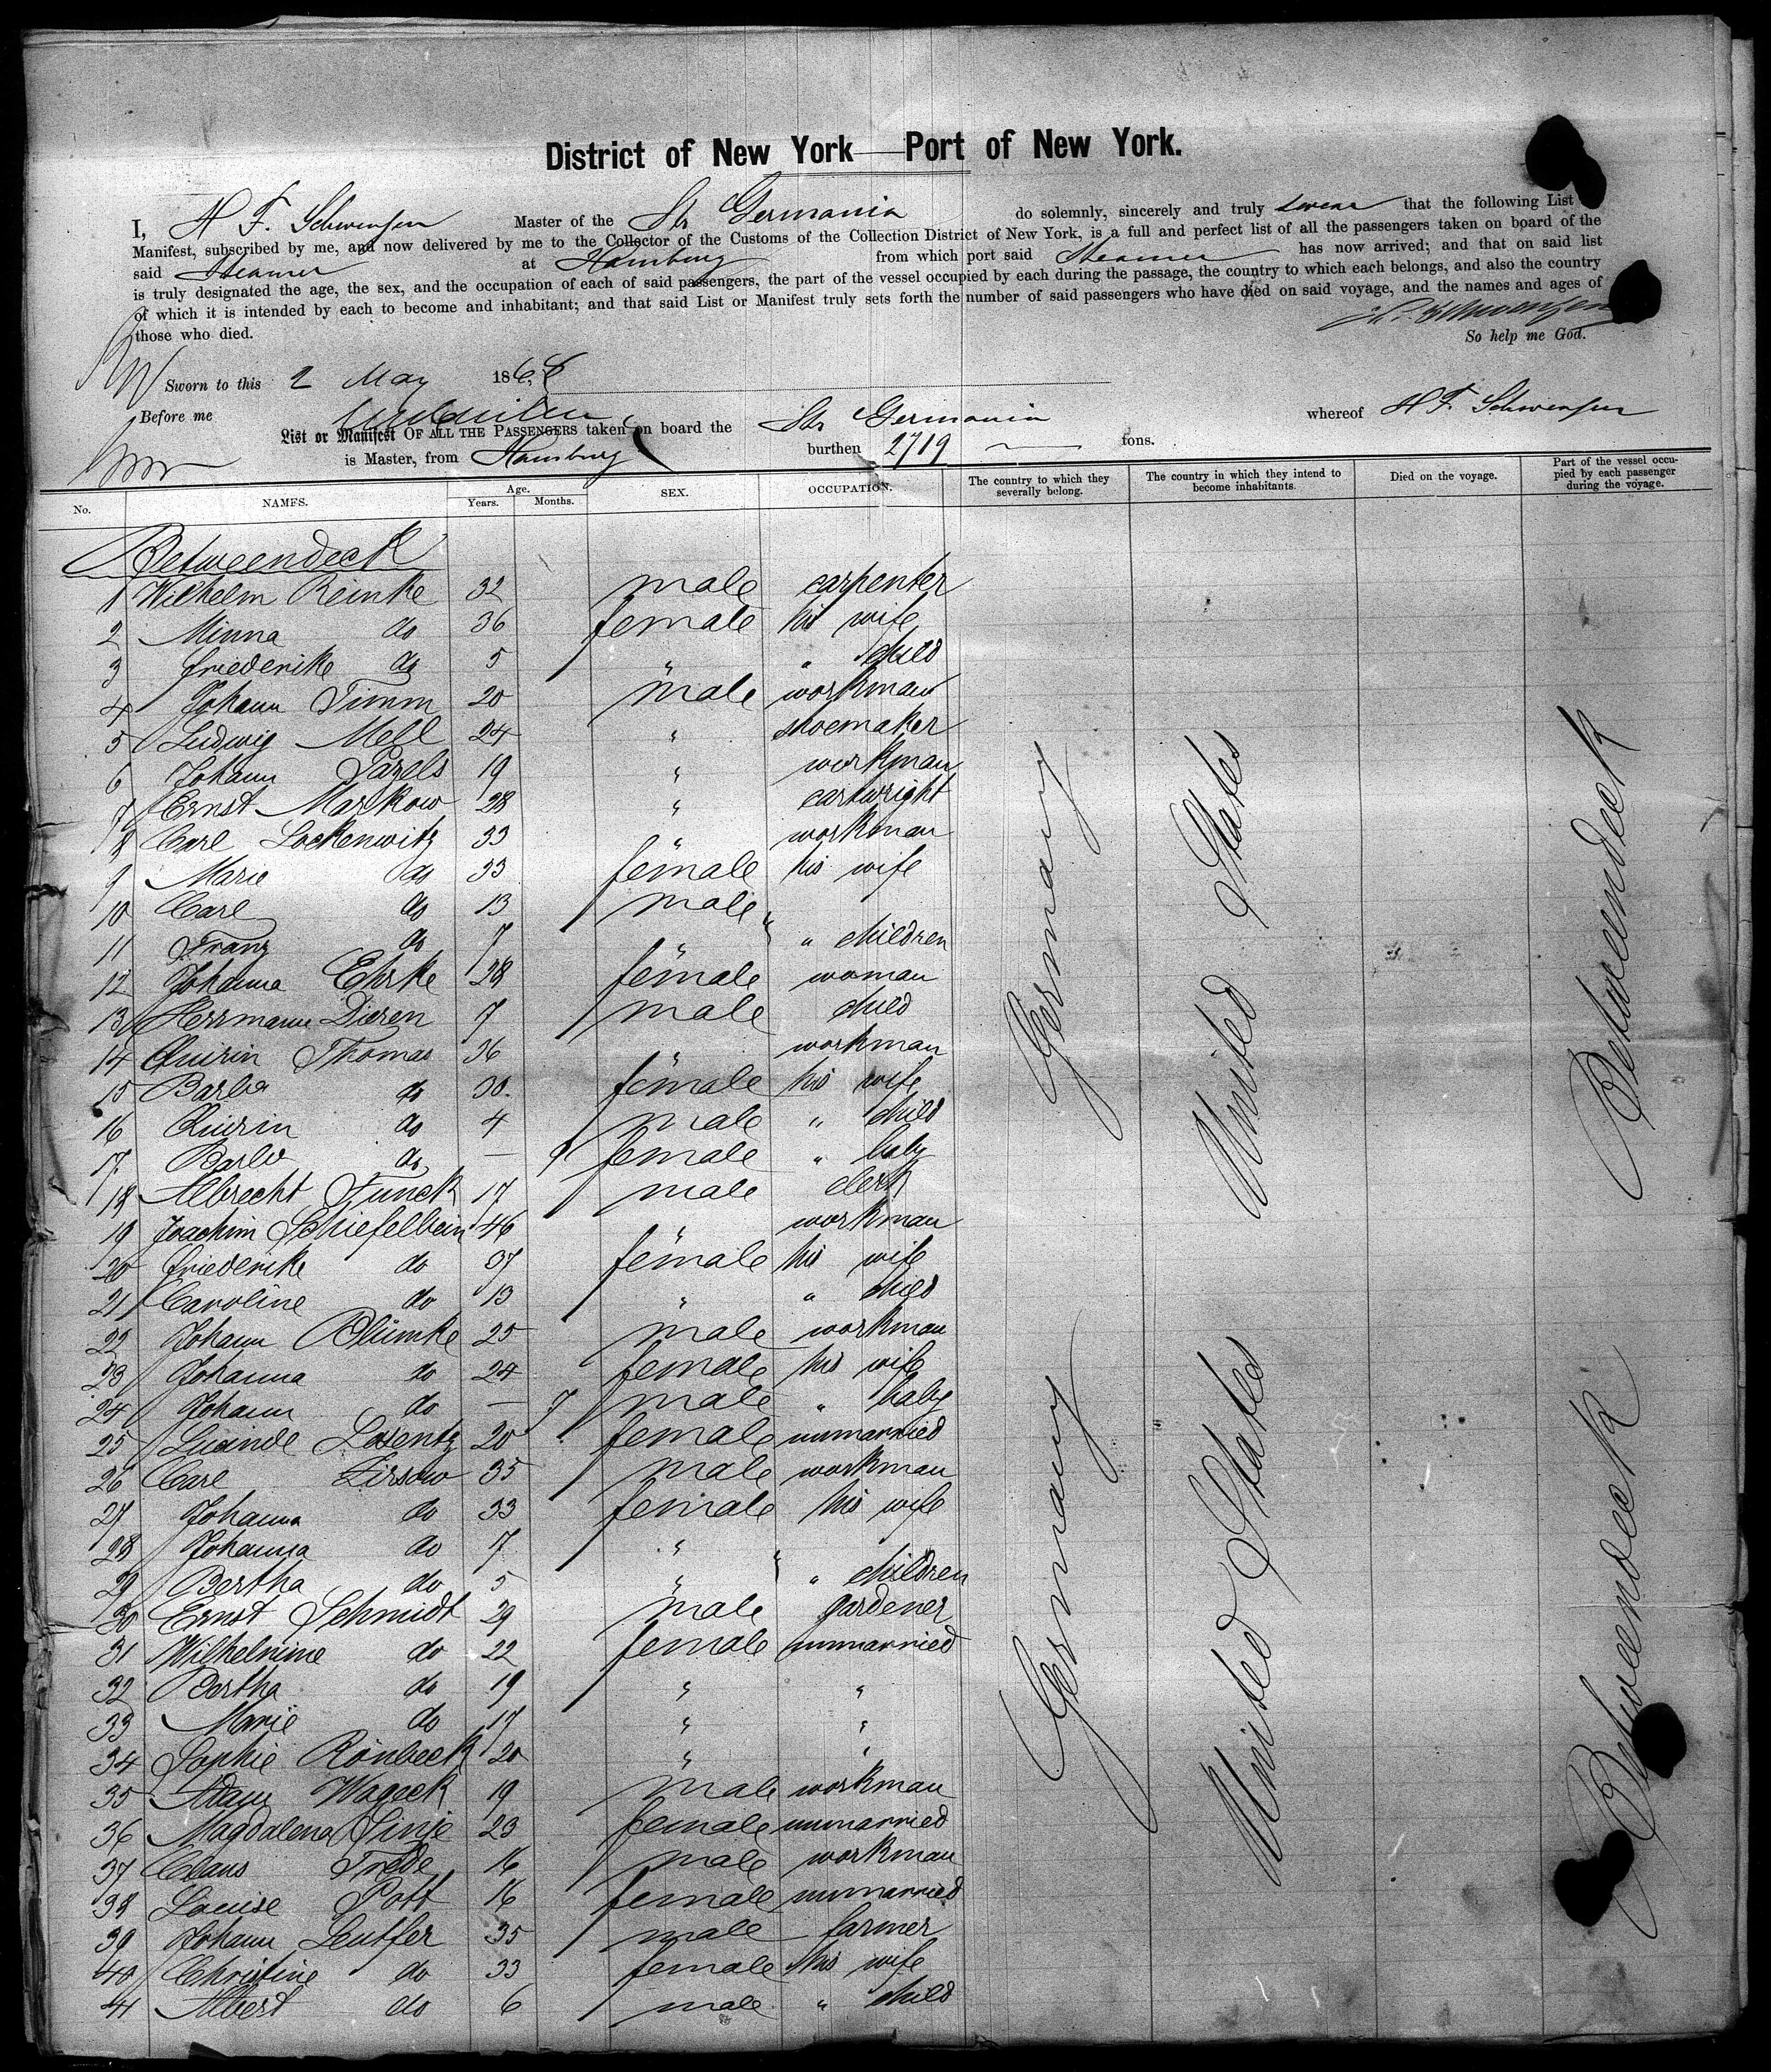 District of New York — Port of New York.
I, H F. Schwensen Master of the Str Germania do solemnly, sincerely and truly swear that the following List
Manifest, subscribed by me, and now delivered by me to the Collector of the Customs of the Collection District of New York, is a full and perfect list of all the passengers taken on board of the
said Steamer at Hamburg from which port said Steamer has now arrived; and that on said list
is truly designated the age, the sex, and the occupation of each of said passengers, the part of the vessel occupied by each during the passage, the country to which each belongs, and also the country
of which it is intended by each to become and inhabitant; and that said List or Manifest truly sets forth the number of said passengers who have died on said voyage, and the names and ages of
those who died. H. F. Schwensen
So help me God.
Sworn to this 2 May 1868
Before me
List or Manifest OF ALL THE PASSENGERS taken on board the Str Germania whereof H F. Schwensen
is Master, from Hamburg burthen 2719 tons.
No. NAMES. Age. Years. Months. SEX. OCCUPATION. The country to which they severally belong. The country in which they intend to become inhabitants. Died on the voyage. Part of the vessel occupied by each passenger during the voyage.
Betweendeck
1 Wilhelm Reinke 32 male carpenter
2 Minna do 36 female his wife
3 Friederike do 5 " " child
4 Johann Timm 20 male workman
5 Ludwig Mell 24 " shoemaker
6 Johann Pazels 19 " workman
7 Ernst Markow 28 " cartwright
8 Carl Lockenwitz 33 " workman
9 Marie do 33 female his wife
10 Carl do 13 male
11 Franz do 7 " " children
12 Johanna Ehrke 28 female woman
13 Herrmann Dieren 7 male child
14 Quirin Thomas 36 " workman
15 Barba do 30. female his wife
16 Quirin do 4 male " child
17 Barba do — 9 female " baby
18 Albrecht Funck 17 male clerk
19 Joachim Schiefelbein 46 " workman
20 Friederike do 37 female his wife
21 Caroline do 13 " " child
22 Johann Blümke 25 male workman
23 Johanna do 24 female his wife
24 Johann do — 7 male " baby
25 Lucinde Losentz 20 female unmarried
26 Carl Zirsow 35 male workman
27 Johanna do 33 female his wife
28 Johanna do 7 "
29 Bertha do 5 " " children
30 Ernst Schmidt 29 male gardener
31 Wilhelmine do 22 female unmarried
32 Bertha do 19 " "
33 Marie do 17 " "
34 Sophie Rönbeck 20 " "
35 Adam Wageck 19 male workman
36 Magdalena Sinje 23 female unmarried
37 Claus Trede 16 male workman
38 Louise Pott 16 female unmarried
39 Johann Leutfer 35 male farmer
40 Christine do 33 female his wife
41 Albert do 6 male " child
Germany
United States
Betweendeck
Germany
United States
Betweendeck